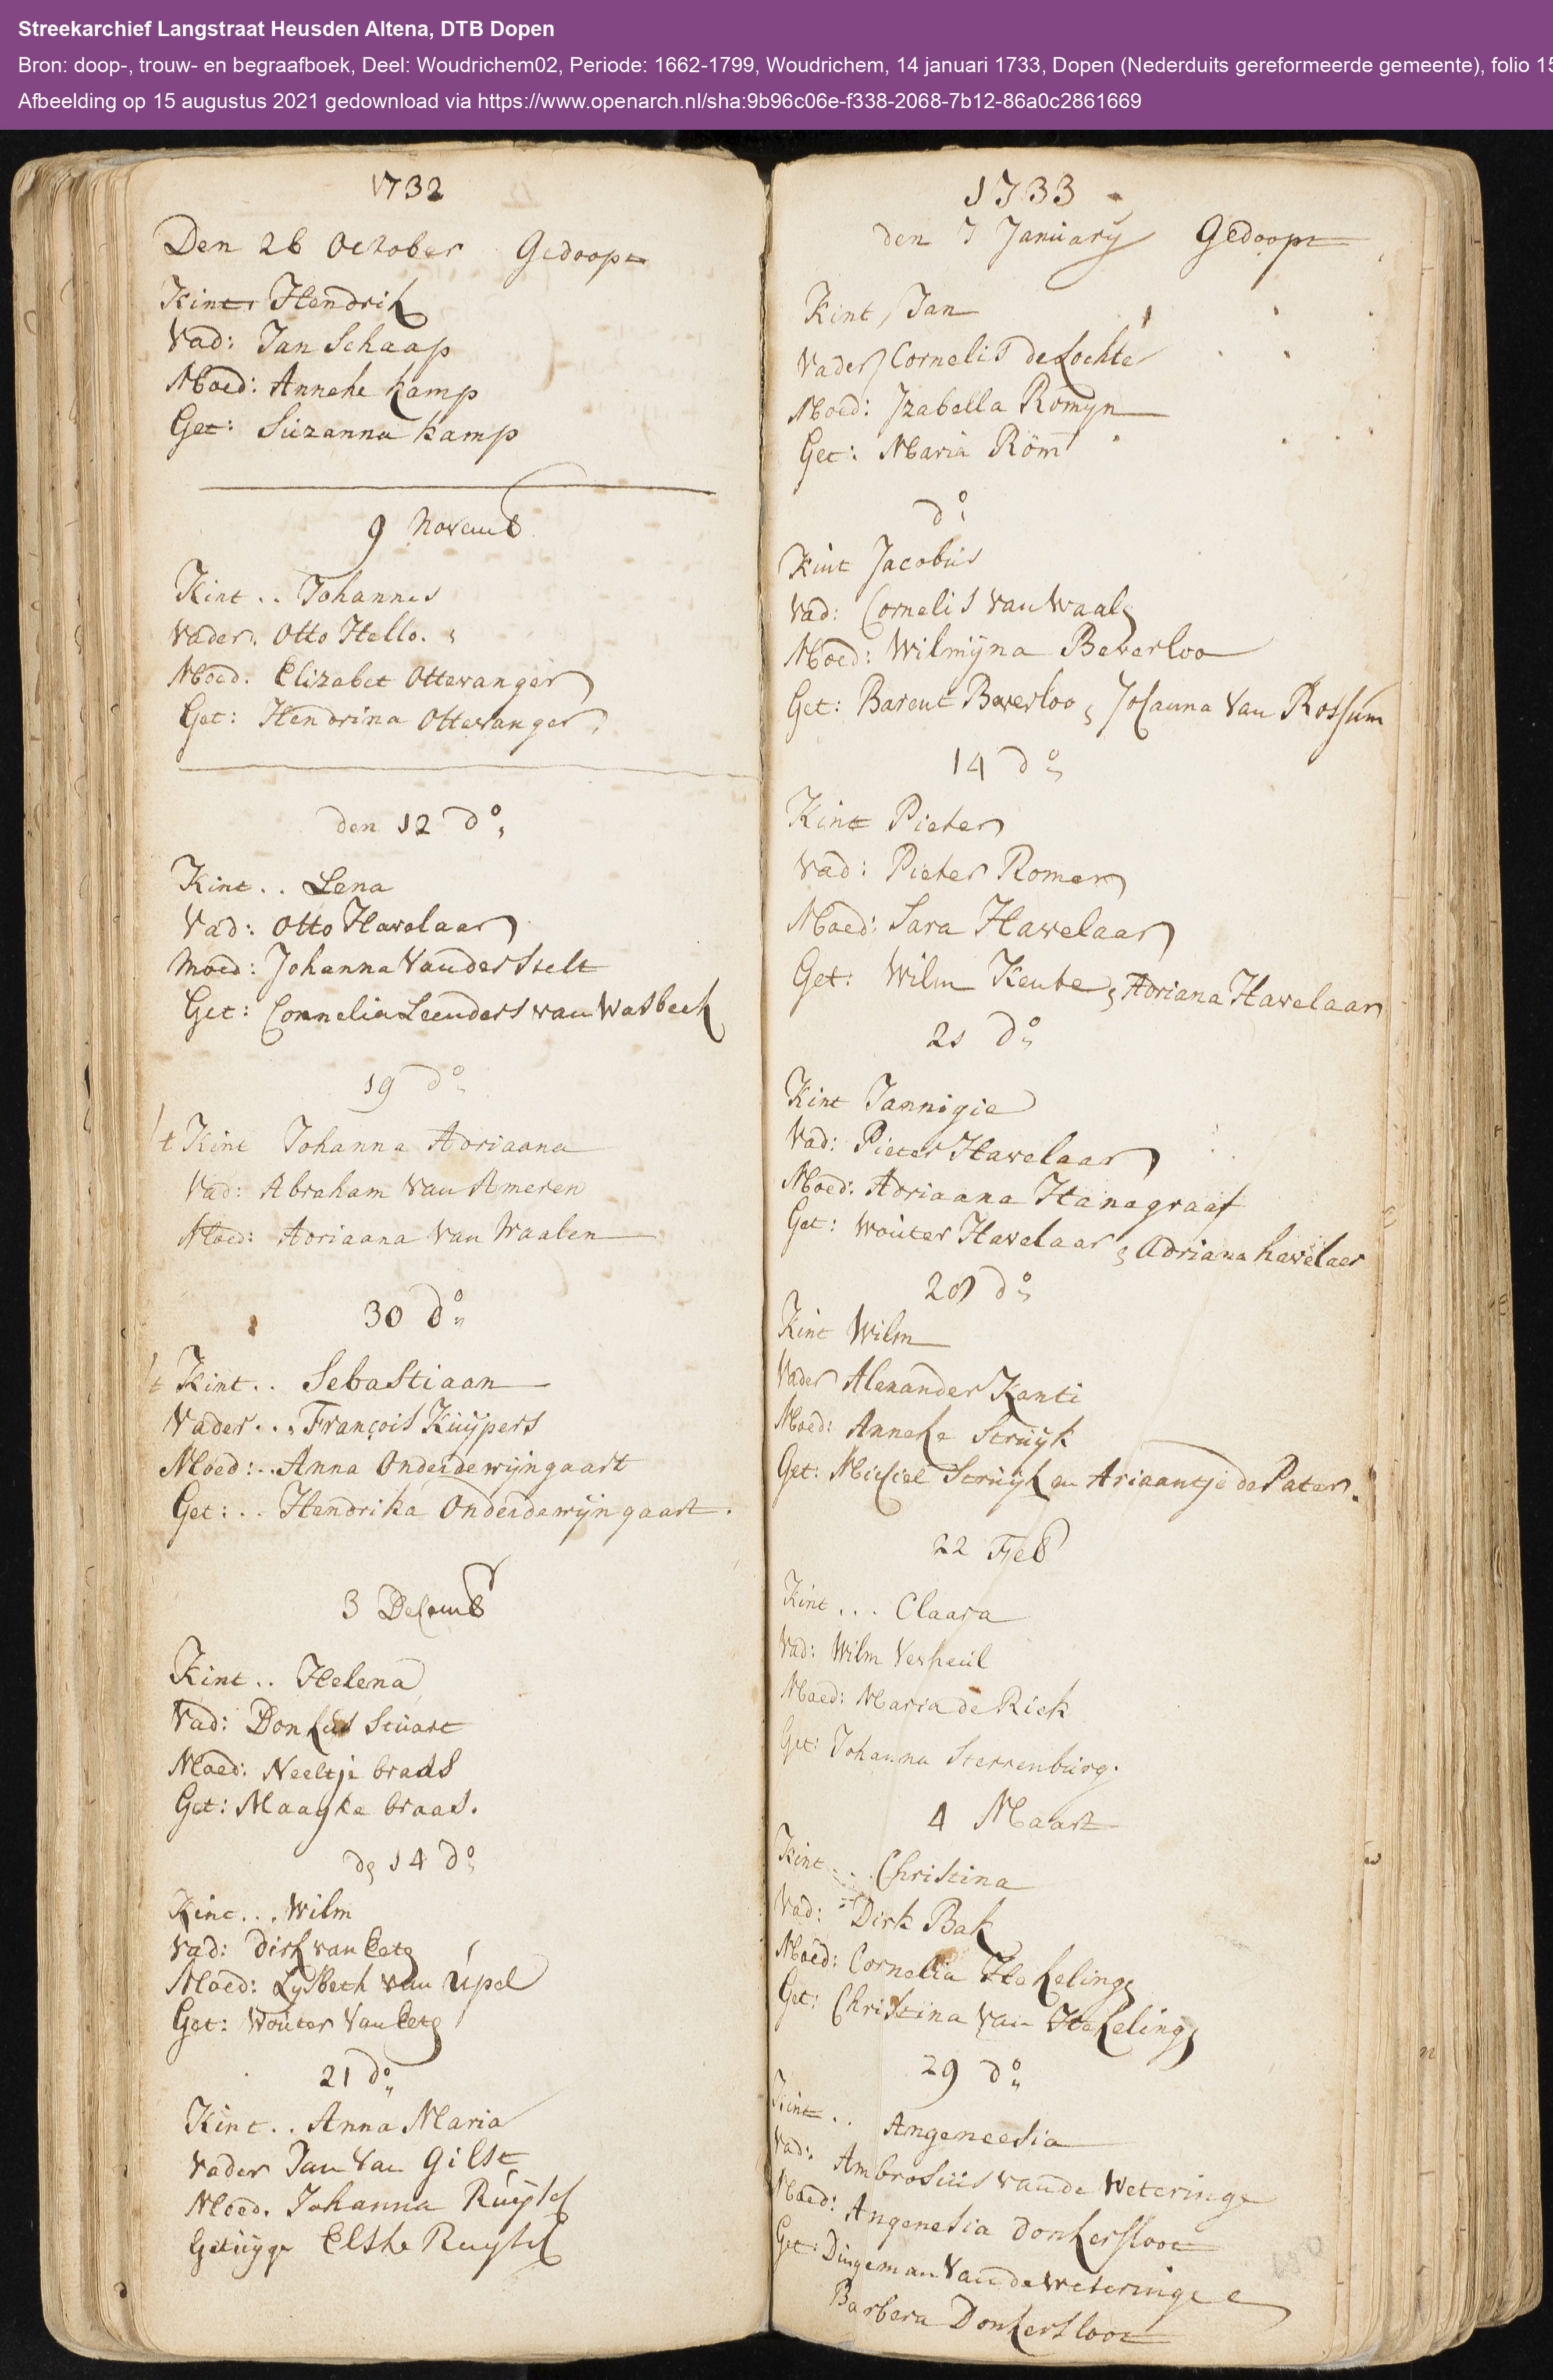 Streekarchief Langstraat Heusden Altena, DTB Dopen
Bron: doop-, trouw- en begraafboek, Deel: Woudrichem02, Periode: 1662-1799, Woudrichem, 14 januari 1733, Dopen (Nederduits gereformeerde gemeente), folio 15
Afbeelding op 15 augustus 2021 gedownload via https://www.openarch.nl/sha:9b96c06e-f338-2068-7b12-86a0c2861669
1732
Den 26 October Gedoopt
Kint Hendrik
Vad: Jan Schaap
Moed: Anneke kamp
Get: Suzanna kamp
9 Novemb
Kint .. Johannes
Vader. Otto Hello.
Moed. Elizabet Ottevanger
Get: Hendrina Ottevanger
den 12 do,
Kint .. Lena
Vad: Otto Havelaar
Moed: Johanna Vander Stelt
Get: Cornelia Leenders van Wasbeek
19 do
't Kint Johanna Adriaana
Vad: Abraham Van Ameren
Moed: Adriaana Van Waalen
30 do
't Kint .. Sebastiaan
Vader ... François Kuÿpers
Moed: .. Anna Onderdewijngaart
Get: .. Hendrika Onderdewijngaart.
3 Decemb
Kint .. Helena
Vad: Donkus Stuart
Moed: Neeltje braas
Get: Maayke braas.
14 do
Kint ... Wilm
Vad: Dirk van Eetg
Moed: Lysbeth van Upel
Get: Wouter Van Eetg
21 do
Kint .. Anna Maria
Vader Jan Van Gilst
Moed. Johanna Ruysch
Getuyge Elske Ruysch
1733
den 7 January Gedoopt
Kint, Jan
Vader Cornelis de Lochte
Moed: Izabella Romyn
Get: Maria Rom
do
Kint Jacobus
Vad: Cornelis van Waals
Moed: Wilmijna Beverloo
Get: Barent Beverloo, Johanna Van Rossum
14 do
Kint Pieter
Vad: Pieter Romer
Moed: Sara Havelaar
Get: Wilm Keube, Adriana Havelaar
21 do
Kint Jannigie
Vad: Pieter Havelaar
Moed: Adriaana Hanegraaf
Get: Wouter Havelaar, Adriana havelaer
28 do
Kint Wilm
Vader Alexander Kanti
Moed: Anneke Struyk
Get: Michiel Struyk en Ariaantje de Pater.
22 Feb
Kint ... Claara
Vad: Wilm Verheul
Moed: Maria de Rick
Get: Johanna Sterrenburg.
4 Maart
Kint .. Christina
Vad: Dirk Bak
Moed: Cornelia Hekeling
Get: Christina Van Hekeling
29 do
Kint .. Angeneesia
Vad: Ambrosius vande Weteringe
Moed: Angenesia Donkersloot
Get: Dingeman Van de Weteringe e
Barbera Donkersloot